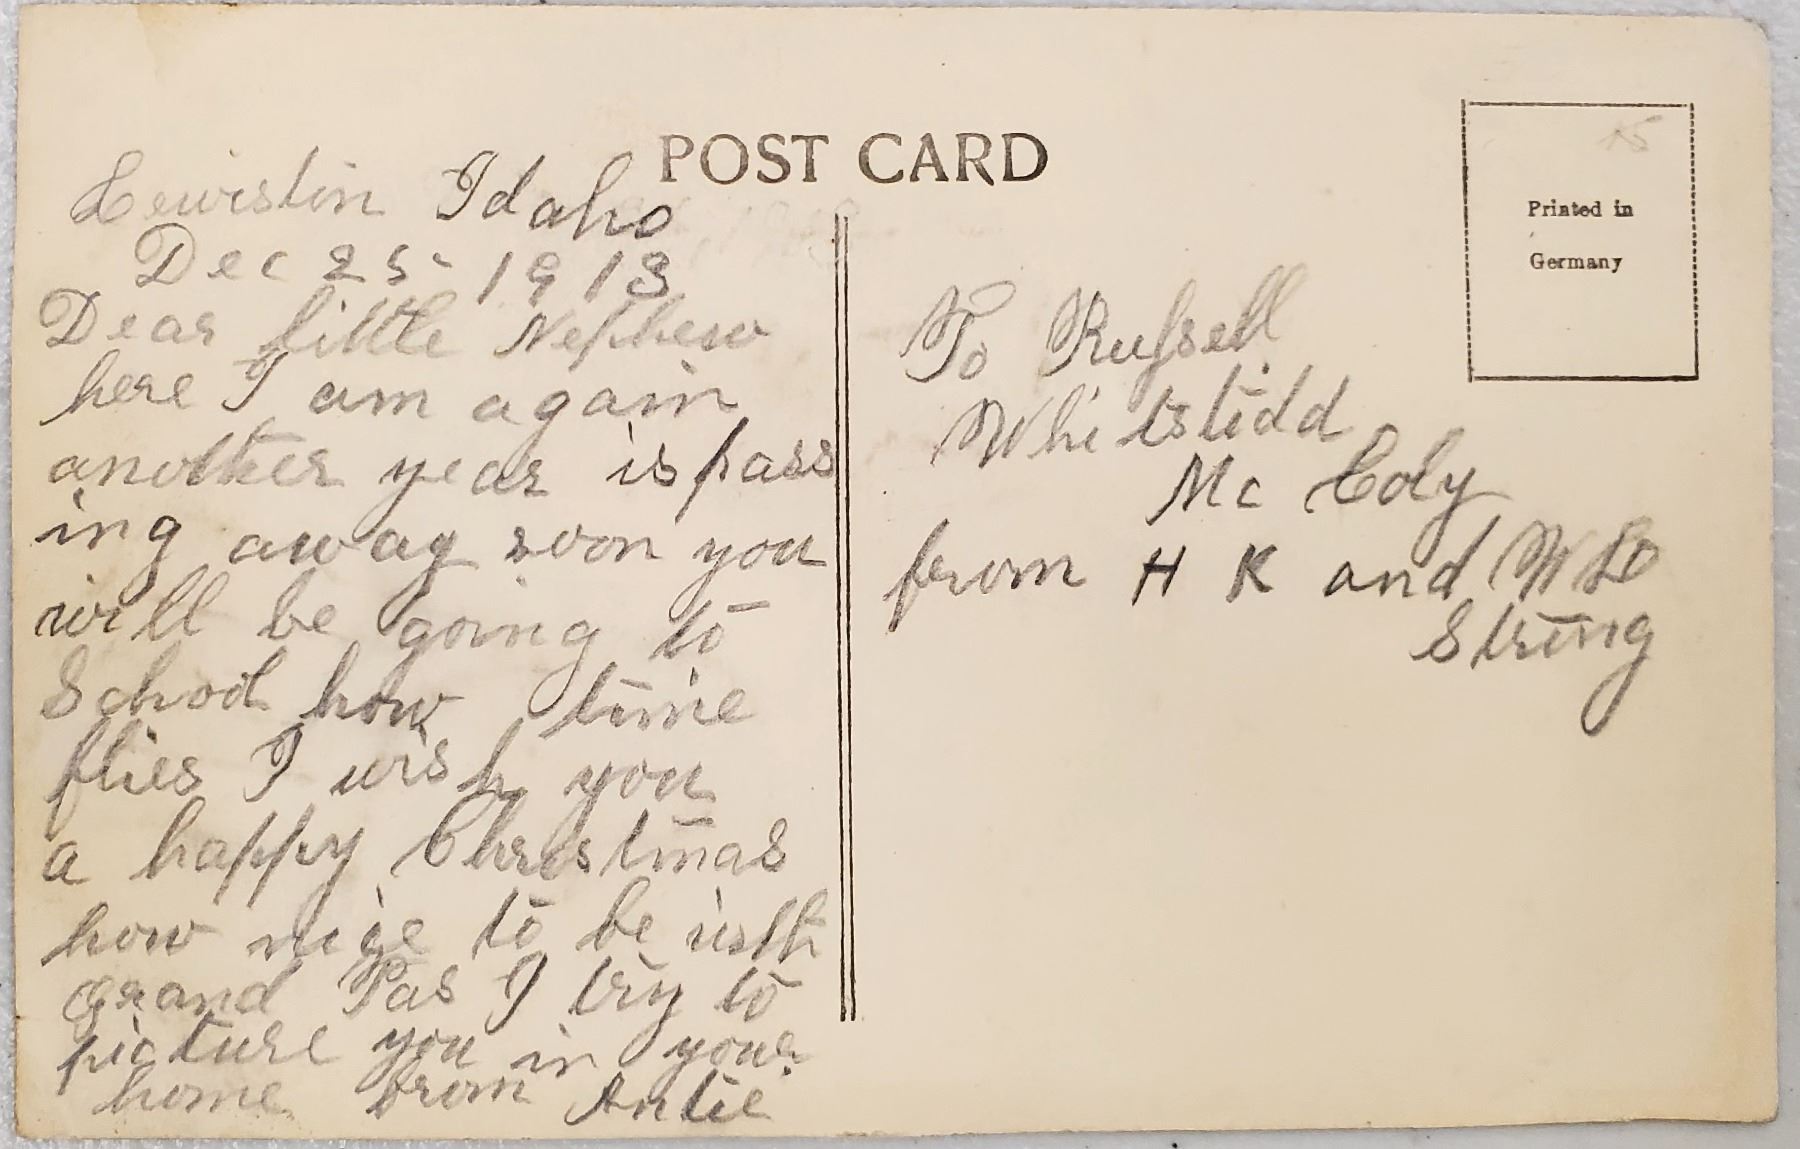 POST CARD
Lewistin Idaho
Dec 25 - 1913
Dear little Nephew
here I am again
another year is pass
ing away soon you
will be going to
School how time
flies I wish you
a happy Christmas
how nice to be with
Grand Pas I try to
picture you in your
home from Antie
Printed in
Germany
To Russell
Whitstidd
Mc Coly
from H K and W
String